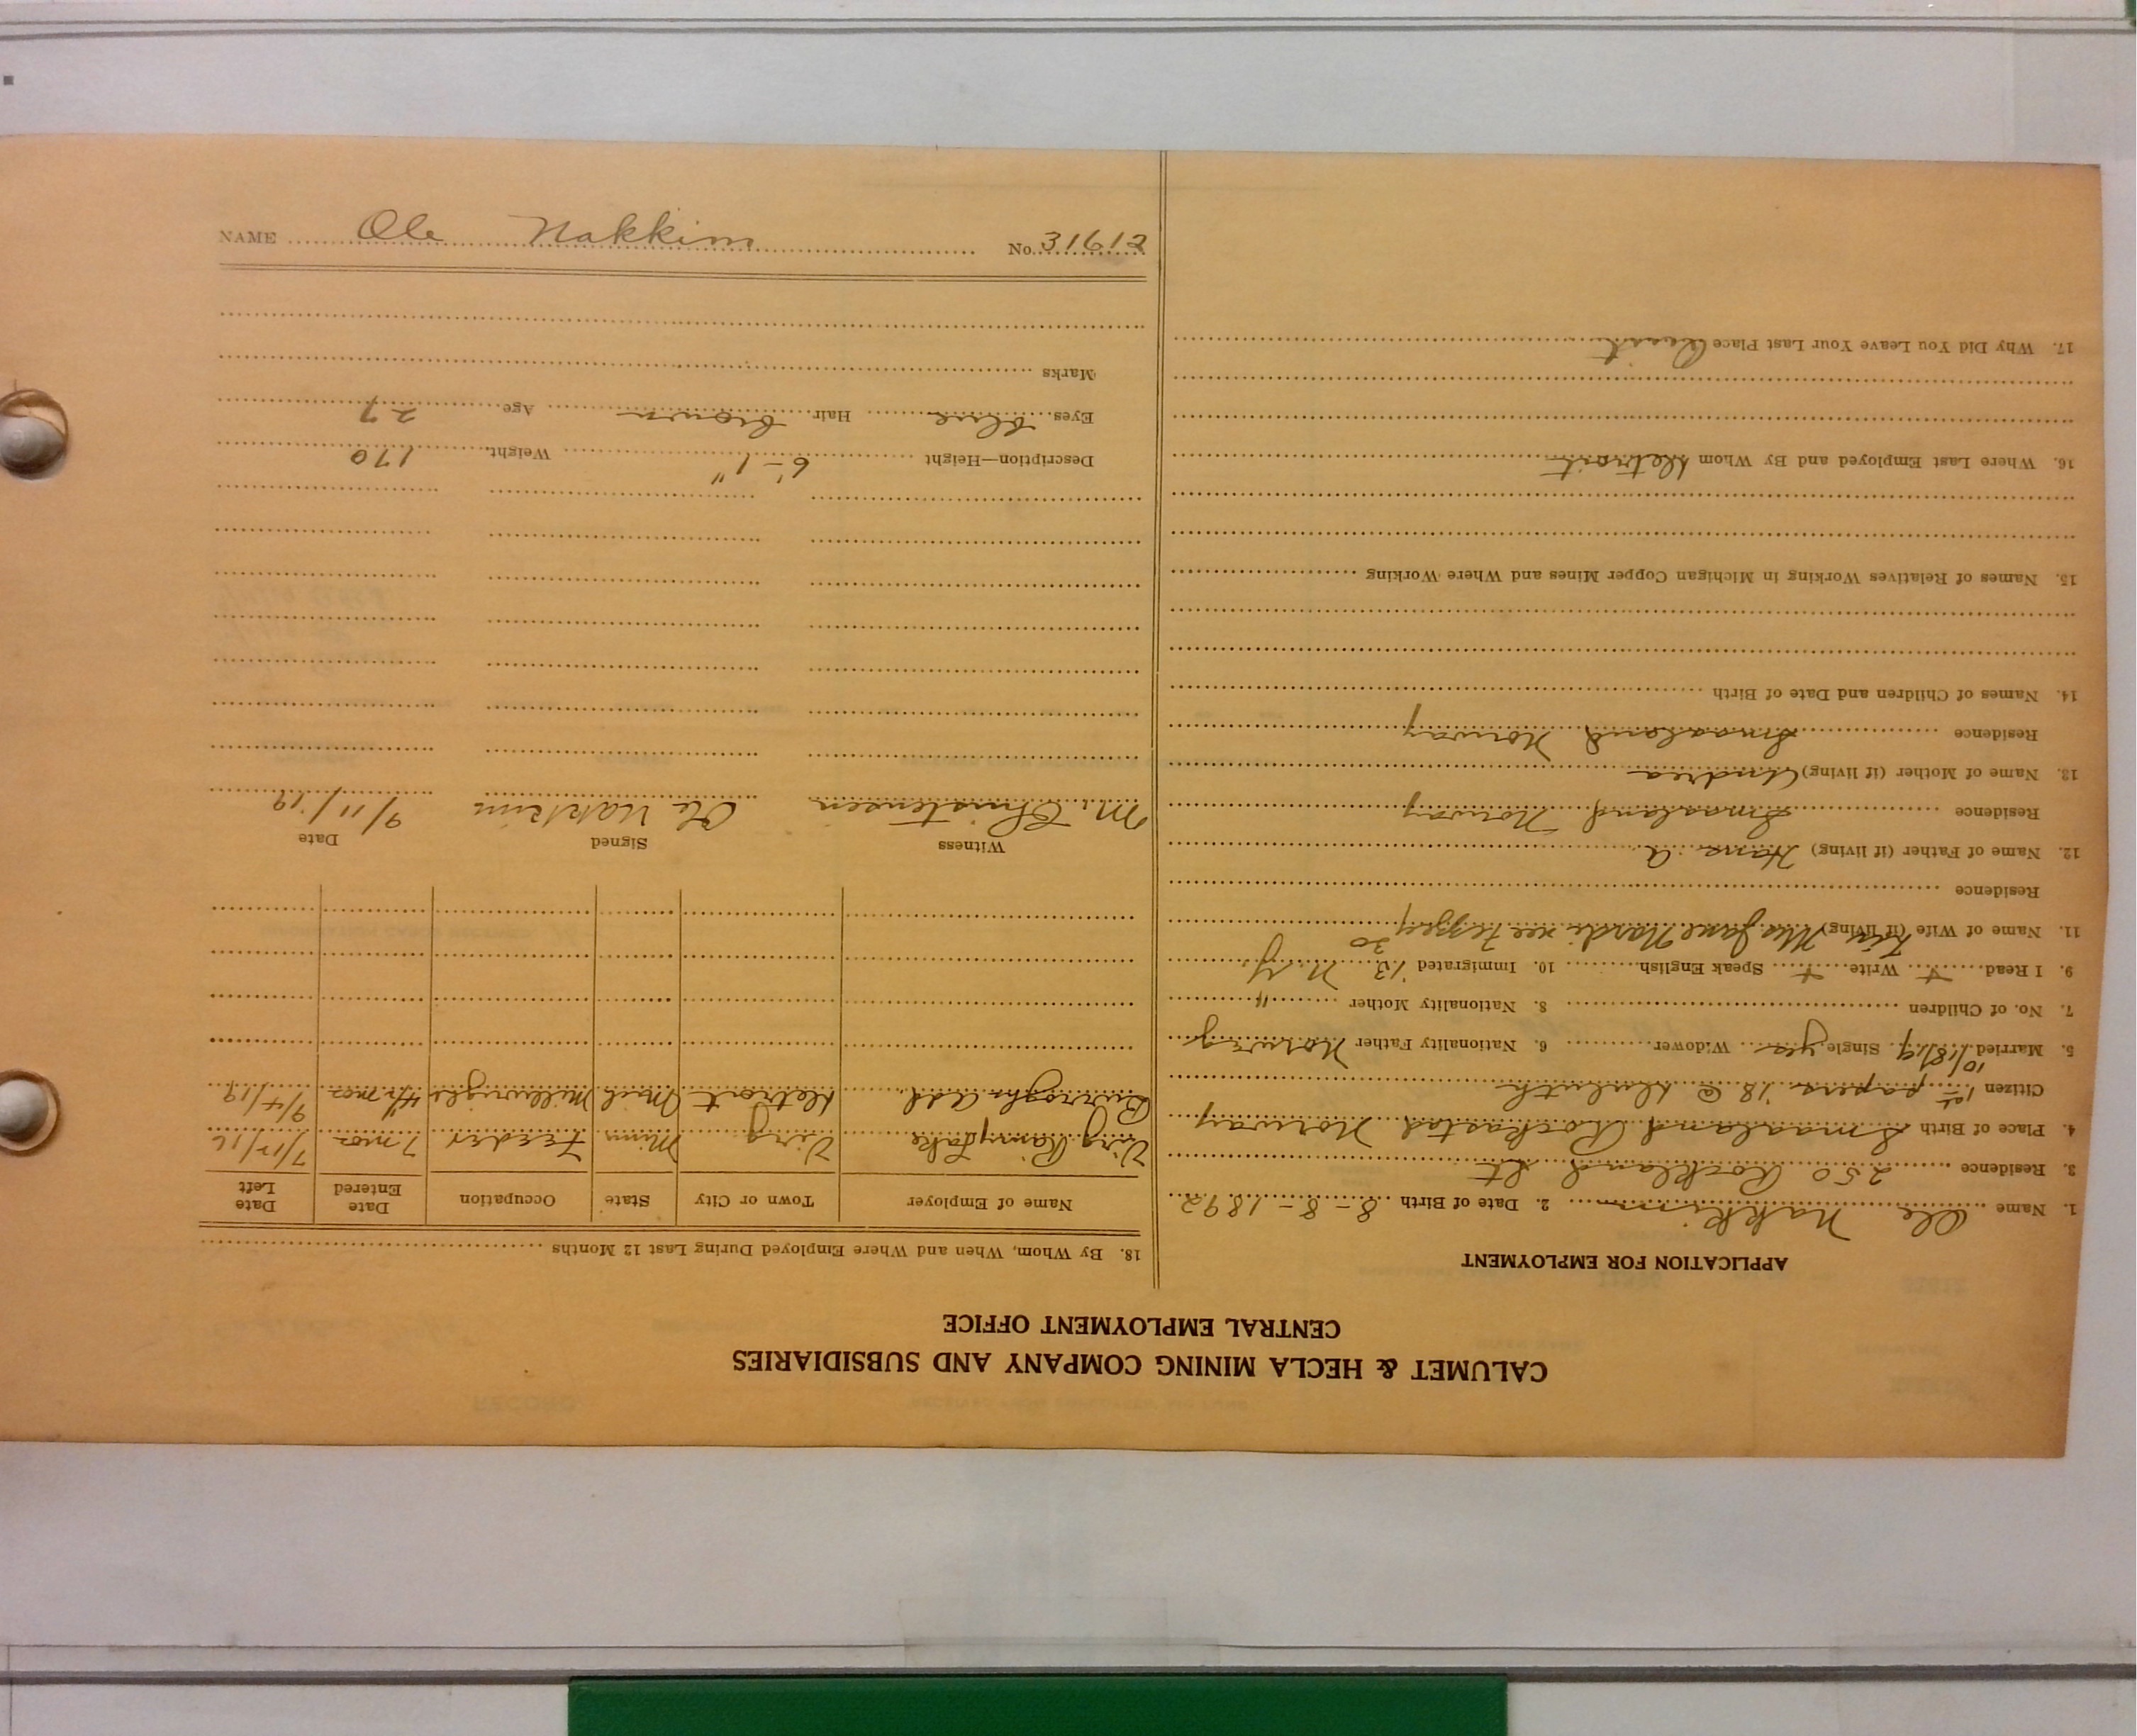 CALUMET & HECLA MINING COMPANY AND SUBSIDIARIES
CENTRAL EMPLOYMENT OFFICE
APPLICATION FOR EMPLOYMENT
1. Name Ole Nakkim 2. Date of Birth 8-8-1892
3. Residence 250 Rockland St
4. Place of Birth Smaaland Rockastad Norway
Citizen 1st papers '18 @ Duluth
10/18/19
5. Married Single yes Widower 6. Nationality Father Norway
7. No. of Children 8. Nationality Mother "
9. I Read + Write + Speak English 10. Immigrated '13 N.Y.
30
11. Name of Wife (if living) Mrs Jane Nardi nee
Residence
12. Name of Father (if living) Hans A
Residence Smaaland Norway
13. Name of Mother (if living) Andrea
Residence Smaaland Norway
14. Names of Children and Date of Birth
15. Names of Relatives Working in Michigan Copper Mines and Where Working
16. Where Last Employed and By Whom Detroit
17. Why Did You Leave Your Last Place Quit
18. By Whom, When and Where Employed During Last 12 Months
Name of Employer Town or City State Occupation Date Entered Date Left
Virg Rainy Lake Virg Minn Feeder 7 mos 7/15/16
Burroughs Add. Detroit Mich Millwright 4½ mos 9/4/19
Witness Signed Date
M. Christensen Ole Nakkim 9/11/19
Description—Height 6-1" Weight 170
Eyes blue Hair brown Age 27
Marks
NAME Ole Nakkim No. 31612